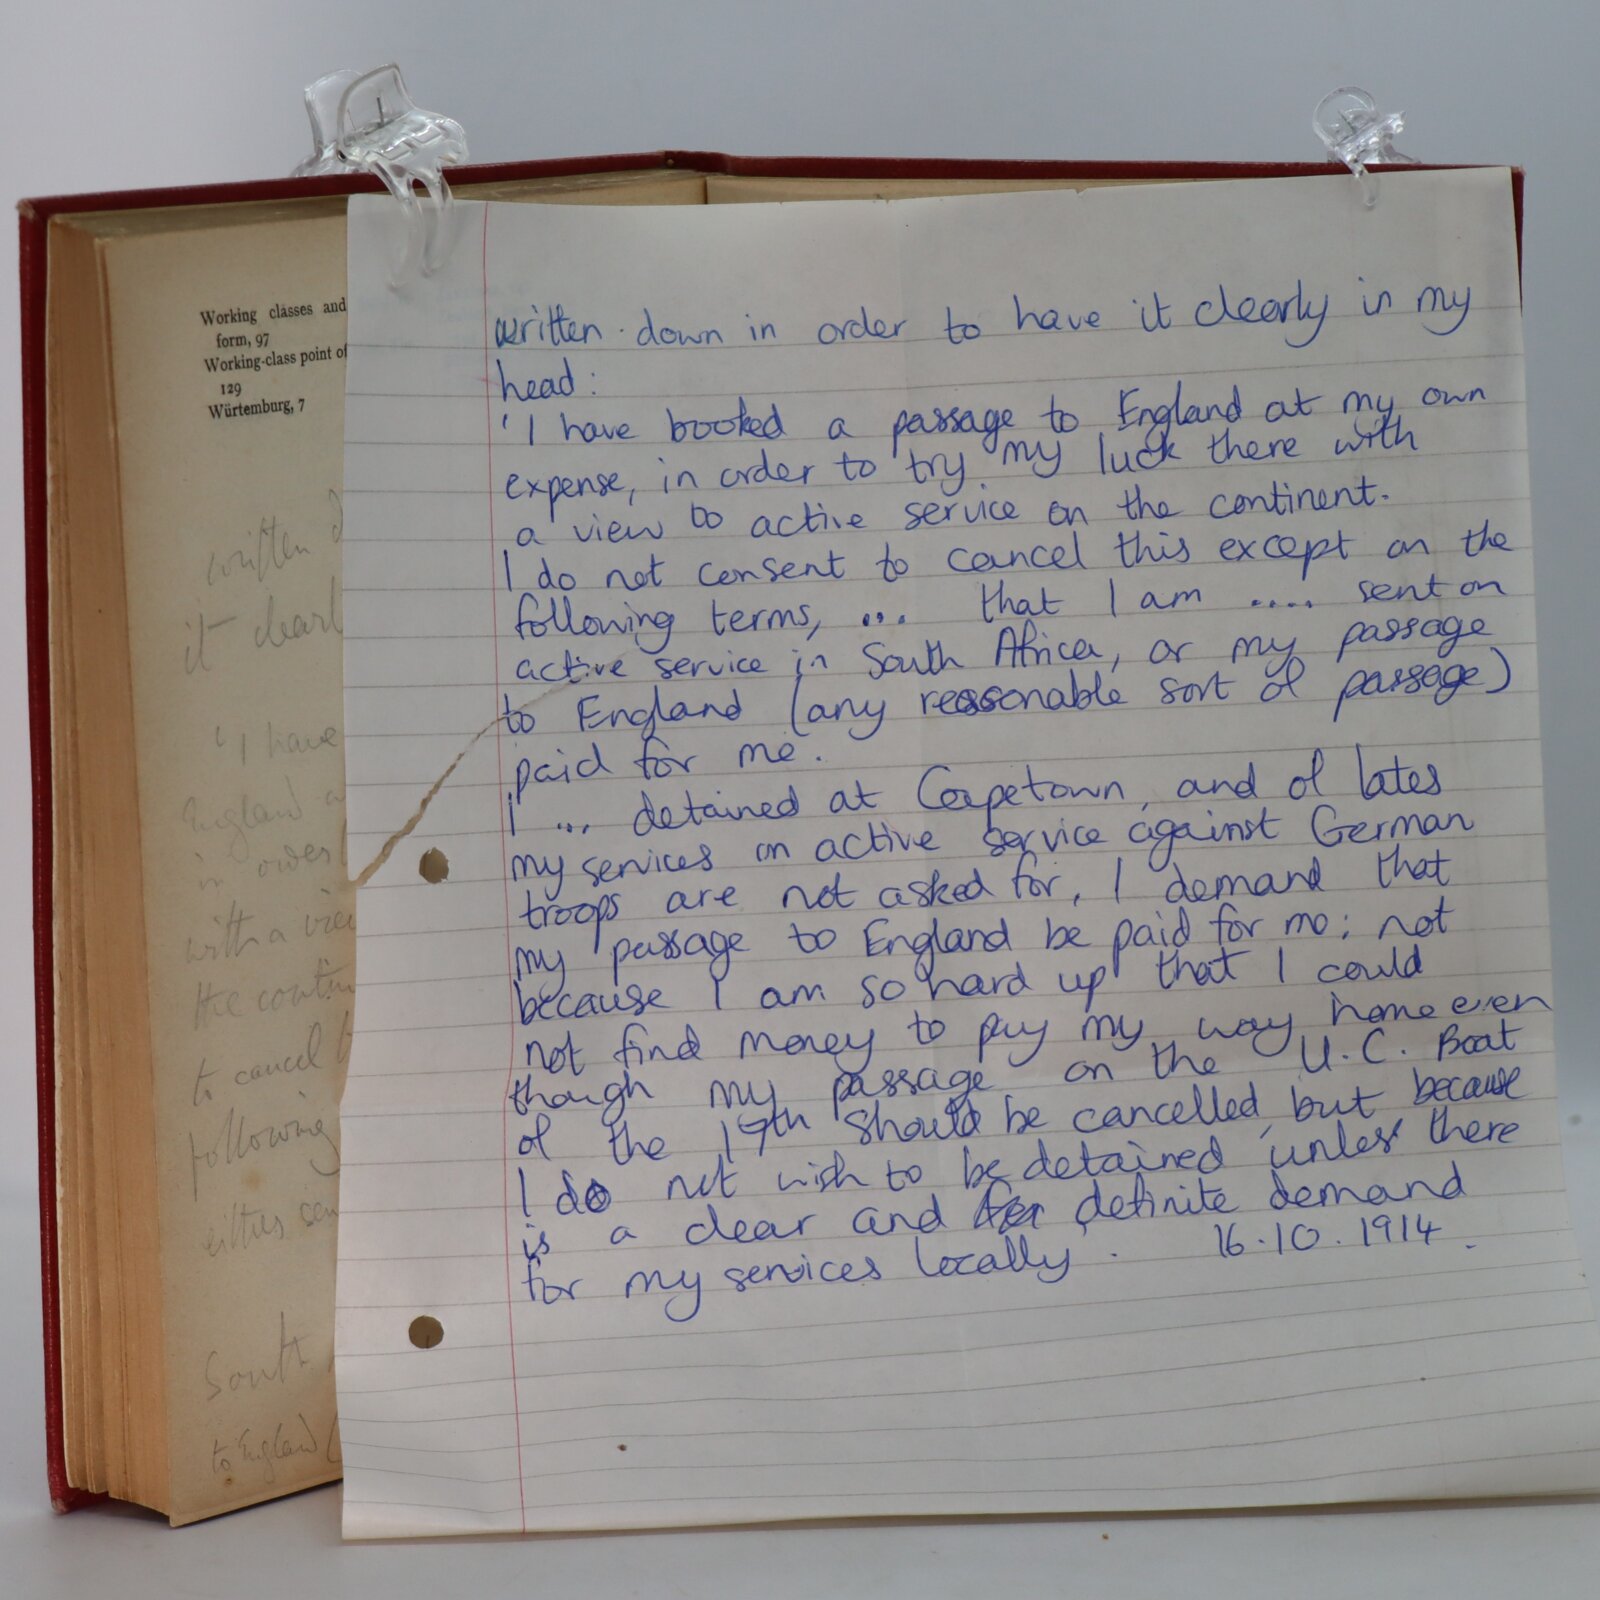 Working classes and
form, 97
Working-class point of
129
Würtemburg, 7
written
it clearl
'I have
England a
in order
with a view
the contin
to cancel
following
either sen
South
to England (
written down in order to have it clearly in my
head:
'I have booked a passage to England at my own
expense, in order to try my luck there with
a view to active service on the continent.
I do not consent to cancel this except on the
following terms, ... that I am .... sent on
active service in South Africa, or my passage
to England (any reasonable sort of passage)
paid for me.
I ... detained at Capetown, and of lates
my services on active service against German
troops are not asked for, I demand that
my passage to England be paid for me; not
because I am so hard up that I could
not find money to pay my way home even
though my passage on the U.C. Boat
of the 17th should be cancelled, but because
I do not wish to be detained unless there
is a clear and definite demand
for my services locally. 16.10.1914.